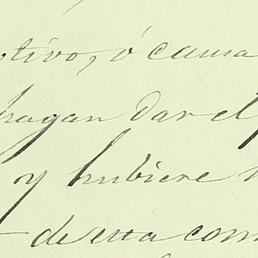 otivo, ó causa
hagan dar el
y hubiere
de esta com